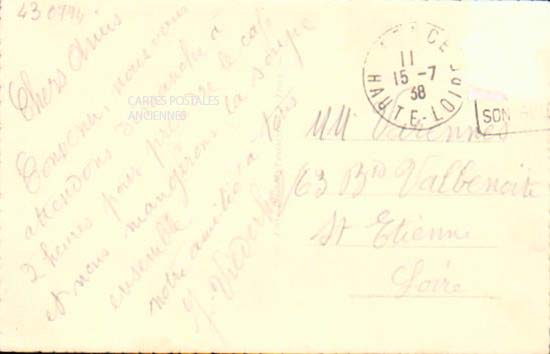 430794
Chers Amis
Convenu, nous vous
attendons dimanche à
2 heures pour prendre le café
et nous mangerons la soupe
ensemble
notre amitié à tous
CARTES POSTALES
ANCIENNES
11
15-7
38
HAUTE-LOIRE
SON
MM Varennes
63 Bd Valbenoite
St Etienne
Loire